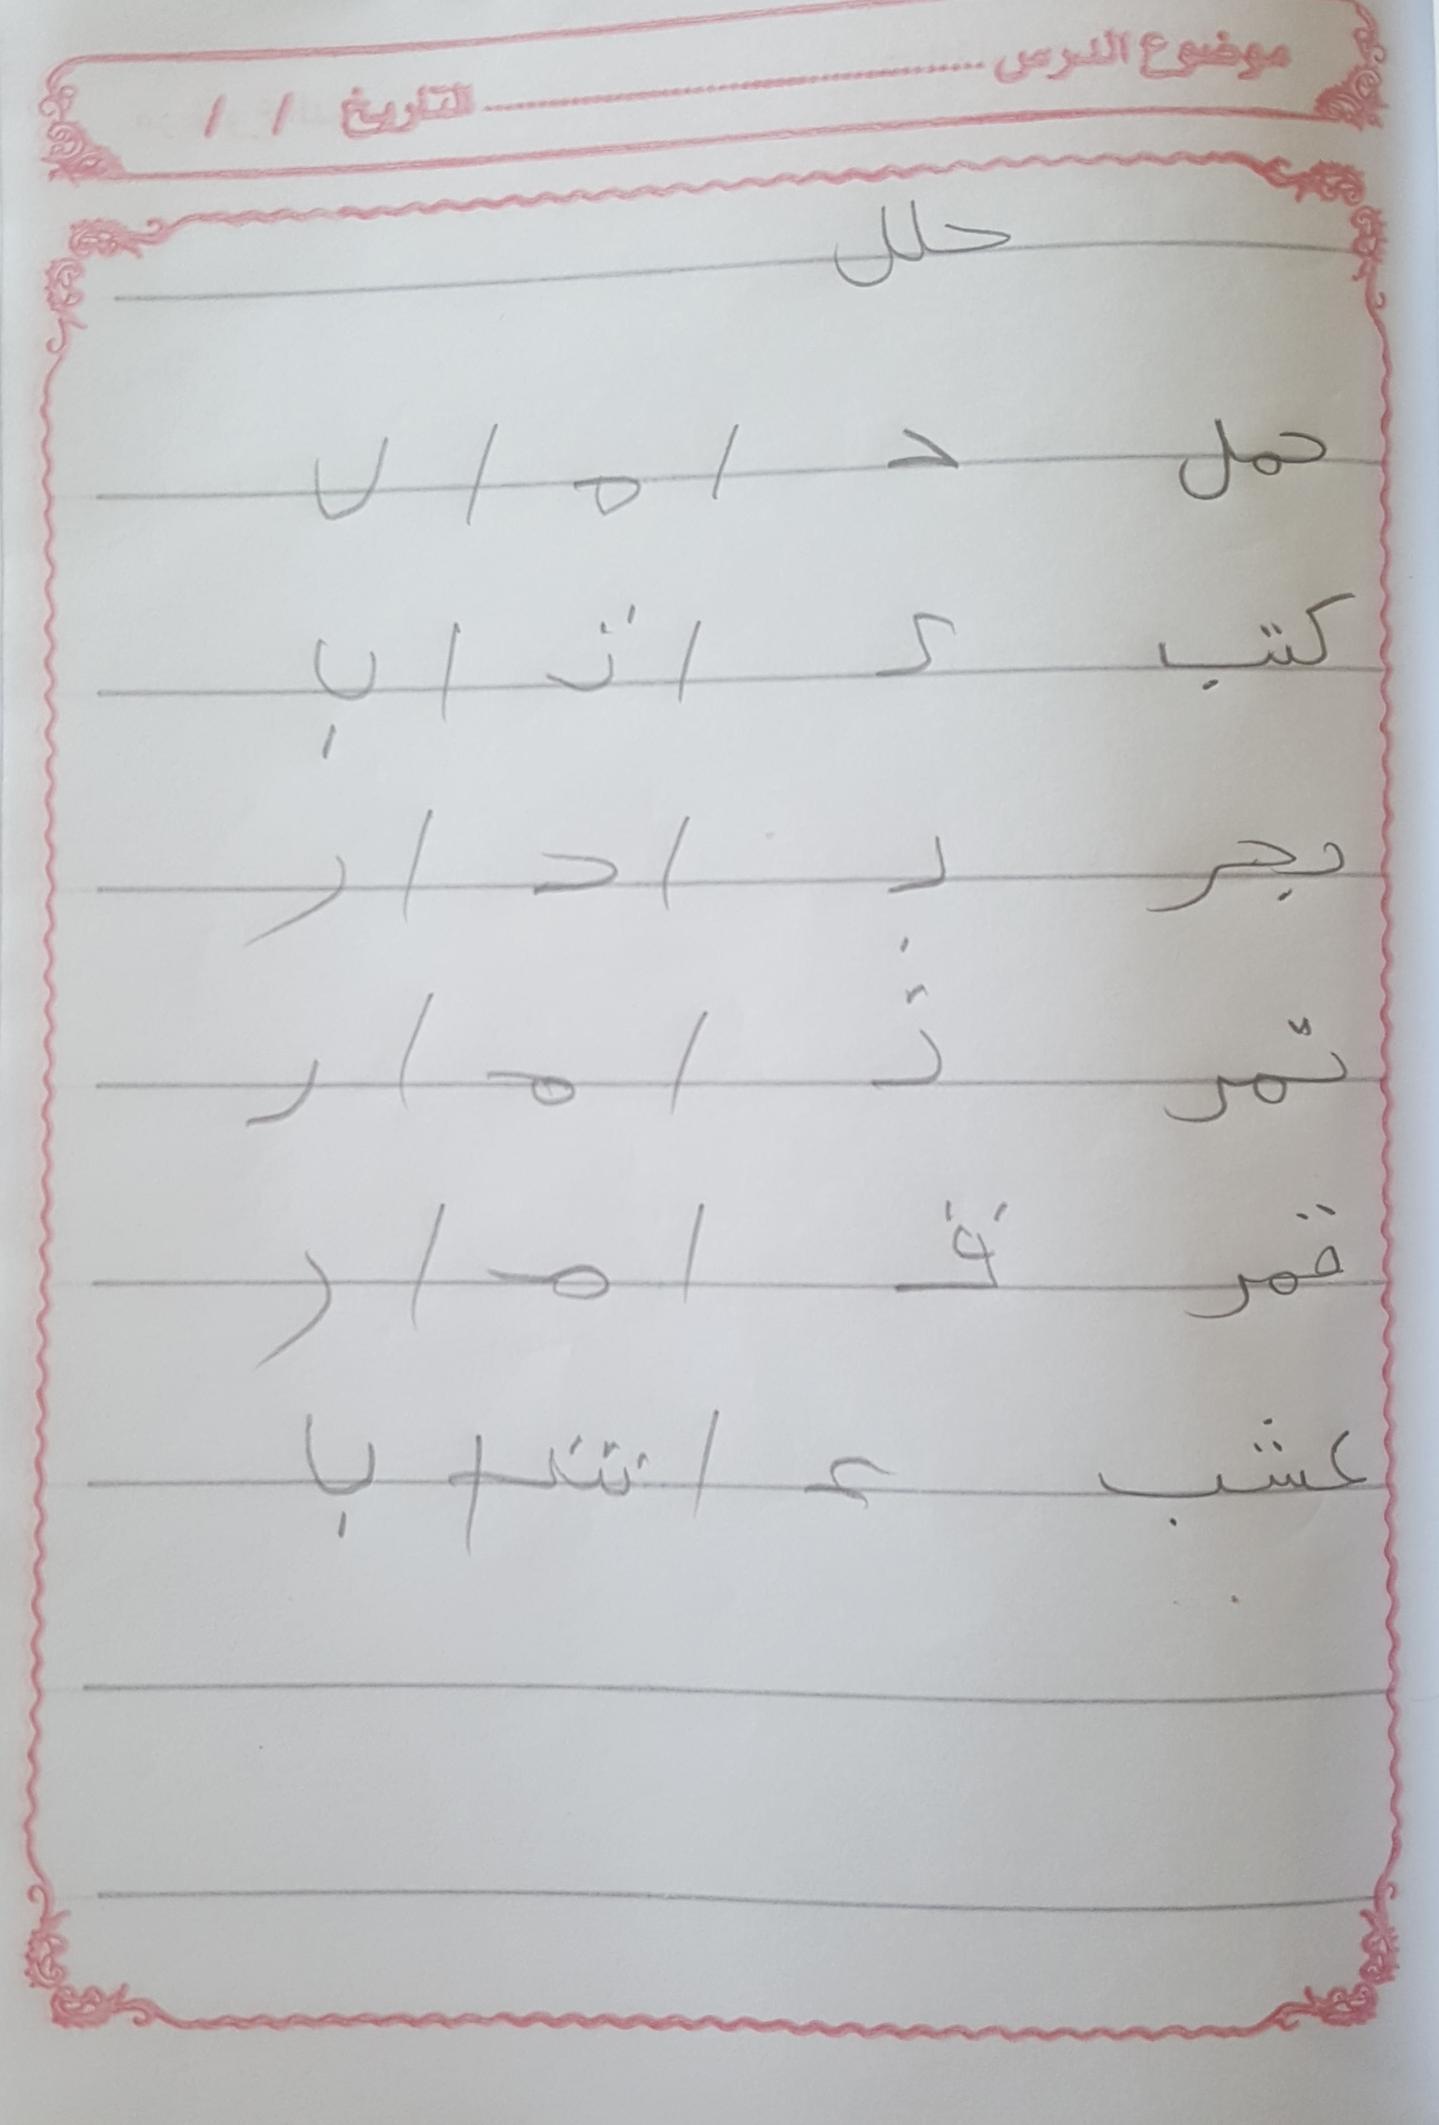 موضوع الدرس ........................ التاريخ / /
حلل
حمل حـ / مـ / ل
كتب كـ / تـ / ب
بحر بـ / حـ / ر
تمر تـ / مـ / ر
قمر قـ / مـ / ر
عشب عـ / شـ / ب